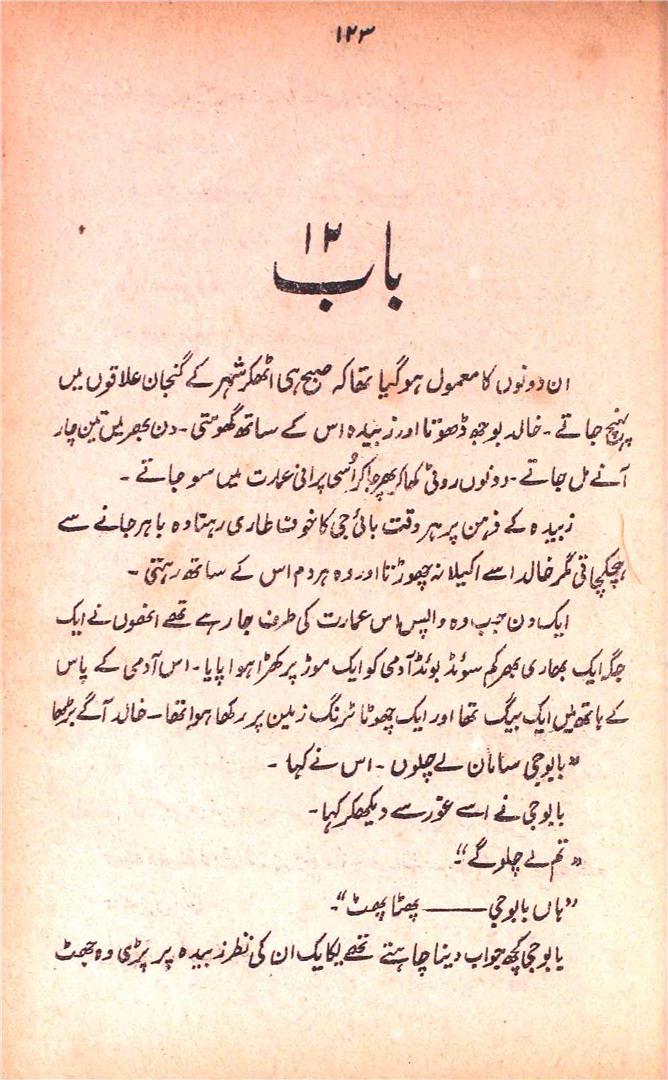 ۱۲۳
باب ۱۲
ان دونوں کا معمول ہوگیا تھا کہ صبح ہی اٹھکر شہر کے گنجان علاقوں میں
پہنچ جاتے ۔ خالد بوجھ ڈھوتا اور زبیدہ اس کے ساتھ گھومتی ۔ دن بھر میں تین چار
آنے مل جاتے ۔ دونوں روٹی کھا کر پھر جا کر اُسی پرانی عمارت میں سو جاتے ۔
زبیدہ کے ذہن پر ہر وقت بائی جی کا خوف طاری رہتا وہ باہر جانے سے
ہچکچاتی مگر خالد اسے اکیلا نہ چھوڑتا اور وہ ہر دم اس کے ساتھ رہتی ۔
ایک دن جب وہ واپس اس عمارت کی طرف جا رہے تھے انھوں نے ایک
جگہ ایک بھاری بھرکم سوئڈ بوئڈ آدمی کو ایک موڑ پر کھڑا ہوا پایا ۔ اس آدمی کے پاس
کے ہاتھ میں ایک بیگ تھا اور ایک چھوٹا ٹرنک زمین پر رکھا ہوا تھا ۔ خالد آگے بڑھا
"بابوجی سامان لے چلوں ۔ اس نے کہا ۔
بابوجی نے اسے غور سے دیکھکر کہا ۔
"تم لے چلو گے"۔
"ہاں بابوجی ——— پھٹا پھٹ"۔
بابوجی کچھ جواب دینا چاہتے تھے یکایک ان کی نظر زبیدہ پر پڑی وہ جھٹ